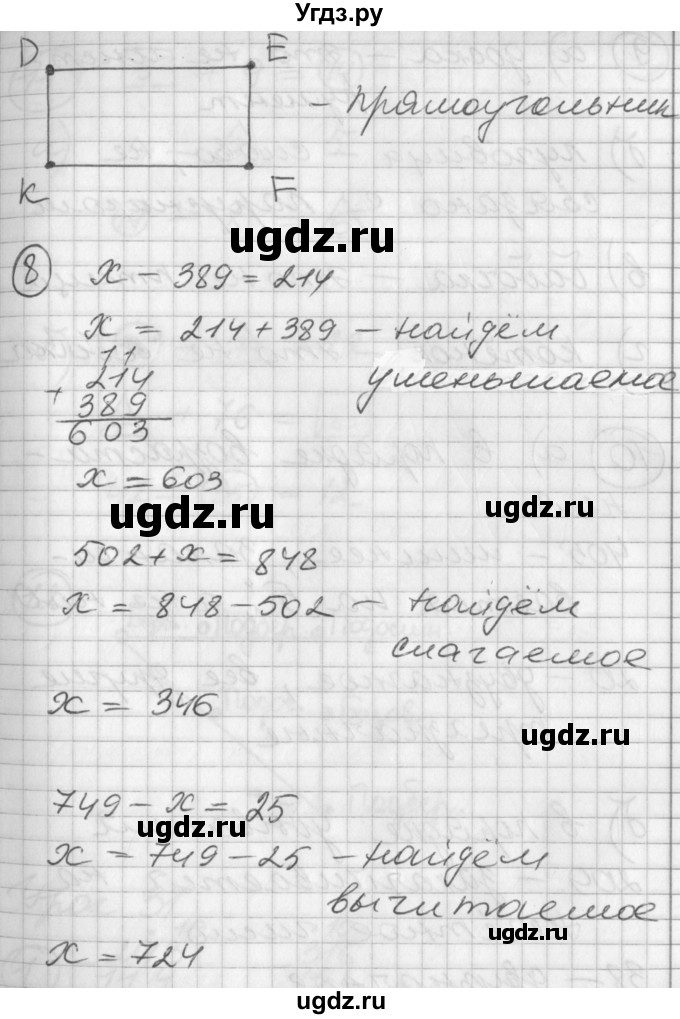 Угдз.ру
D E
– прямоугольник
K F
ugdz.ru
8 x – 389 = 214
x = 214 + 389 – найдём
уменьшаемое
11
+ 214
389
603
x = 603
ugdz.ru
ugdz.ru
502 + x = 848
x = 848 – 502 – найдём
слагаемое
x = 346
ugdz.ru
749 – x = 25
ugdz.ru
x = 749 – 25 – найдём
вычитаемое
x = 724
ugdz.ru
ugdz.ru